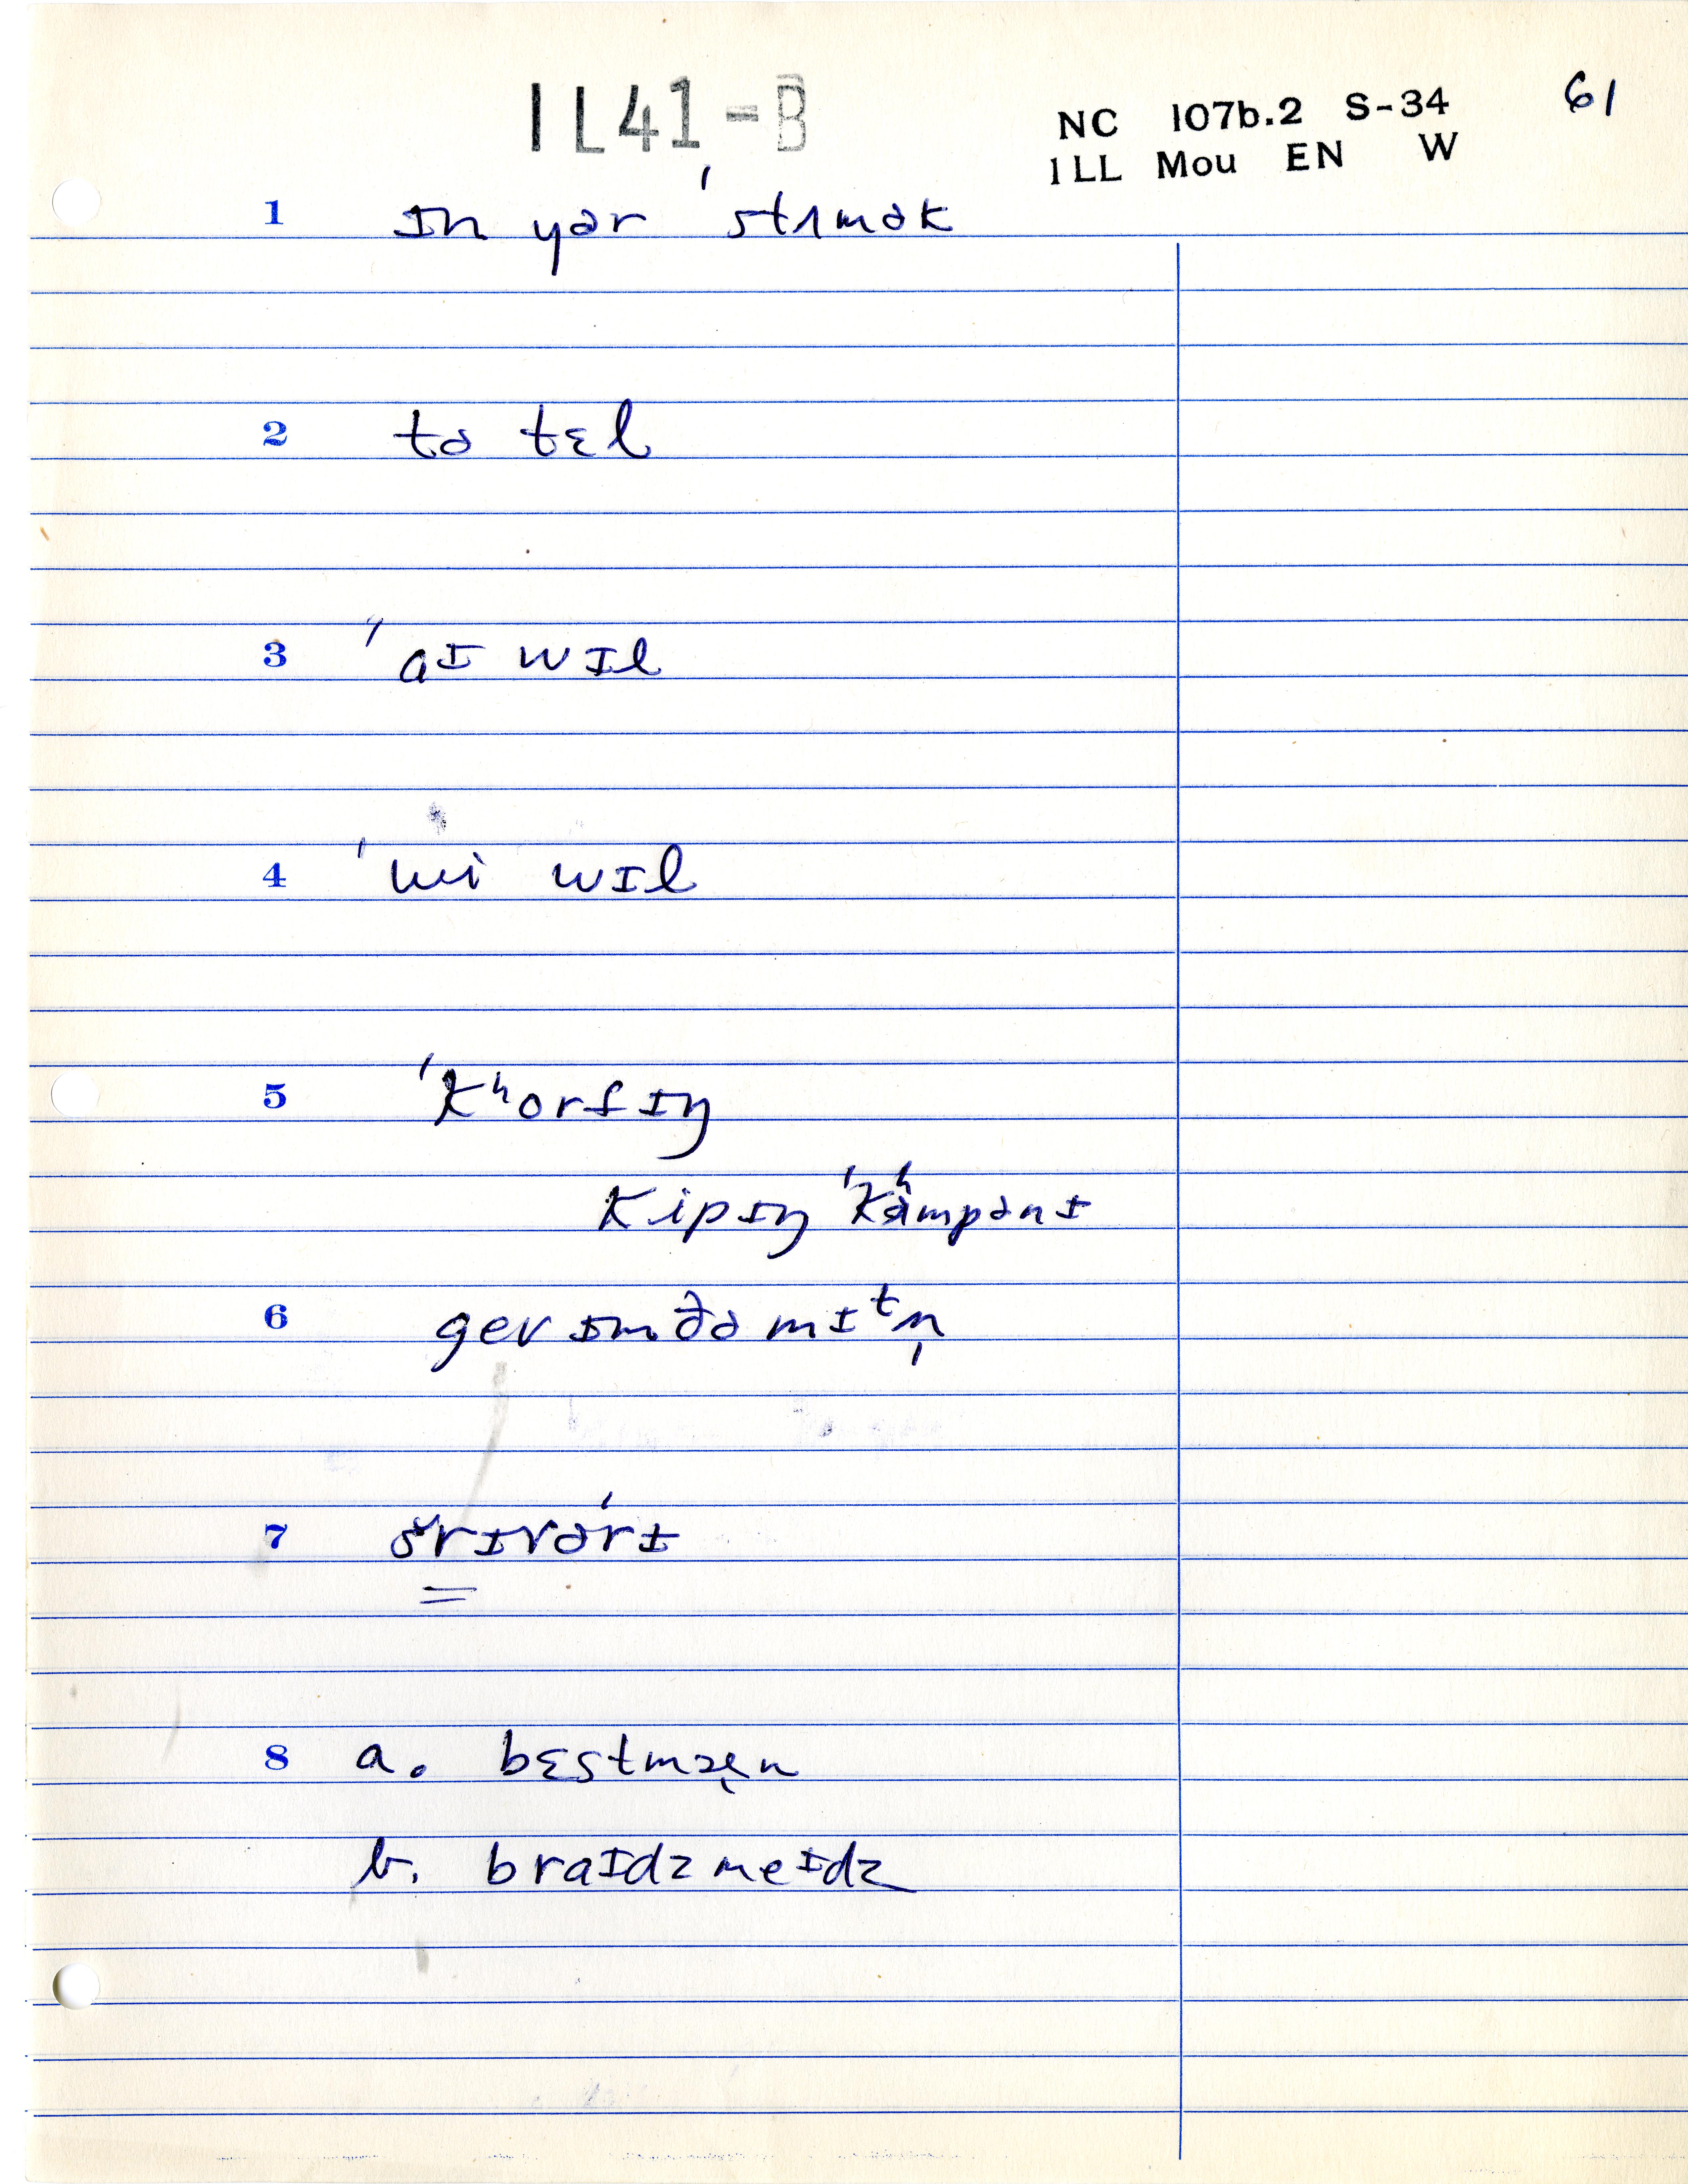 IL41-B
NC 107b.2 S-34 61
ILL Mou EN W
1 ɪn yər ˈstʌmək
2 tə tɛl
3 ˈaɪ wɪl
4 ˈwi wɪl
5 ˈkʰorsɪŋ
kipɪŋ ˈkʰʌmpənɪ
6 gev ɪm ðə mɪᵗn̩
7 šrɪvərɪ
8 a. bɛstmæn
b. braɪdzmeɪdz